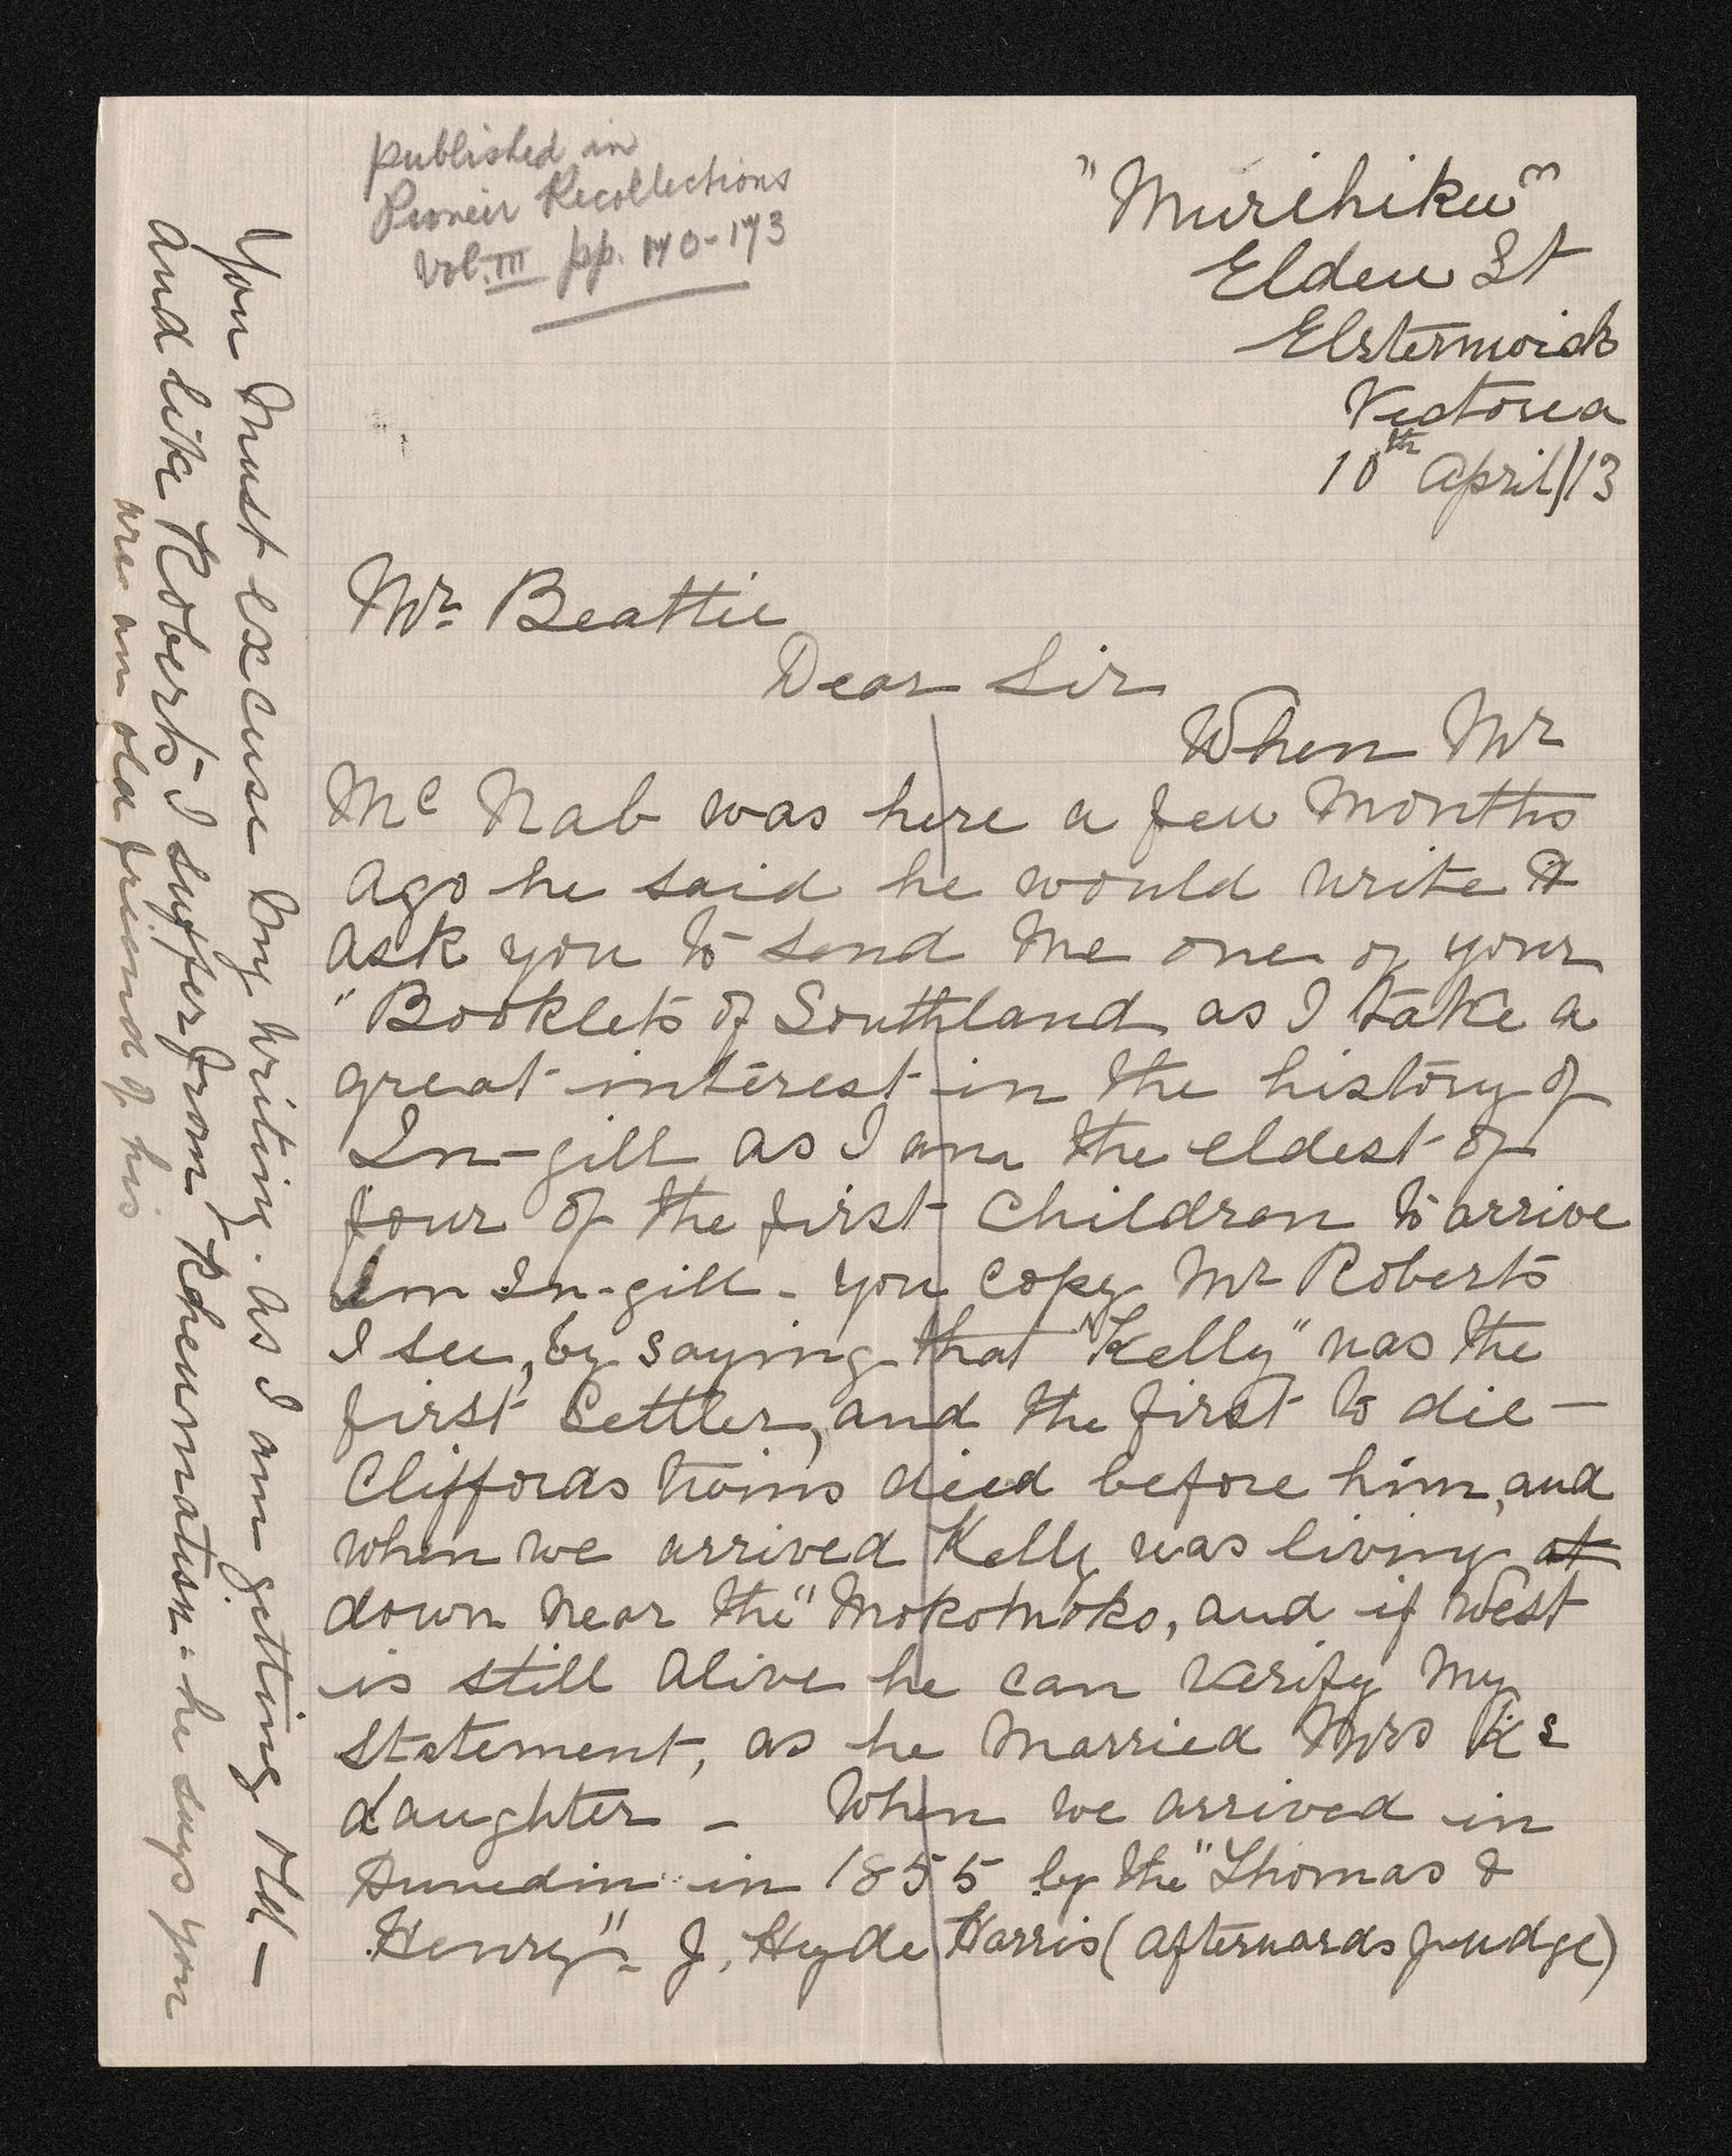 published in
Pioneer Recollections
Vol. III pp. 170-173
"Murihiku"
Elden St
Elsternwick
Victoria
10th April/13
Mr. Beattie
Dear Sir
When Mr
Mc Nab was here a few months
ago he said he would write &
ask you to send me one of your
"Booklets of Southland as I take a
great interest in the history of
In-gill as I am the eldest of
four of the first children to arrive
in In-gill - you copy Mr Roberts
I see, by saying that "Kelly" was the
first Settler, and the first to die —
Cliffords twins died before him, and
when we arrived Kelly was living at
down near the "Mokomoko, and if West
is still alive he can verify my
statement, as he married Mrs K's
daughter - When we arrived in
Dunedin in 1855 by the "Thomas &
Henry" - J. Hyde Harris (afterwards Judge)
You must excuse my writing. as I am getting old —
and like Roberts - I suffer from Rheumatism - he says you
are an old friend of his